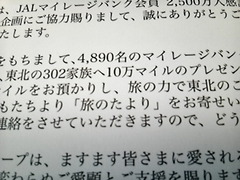 は、JALマイレージバンク会員 2,500万人感
企画にご協力賜りまして、誠にありがとうこ
たします。
をもちまして、4,890名のマイレージバン
、東北の302家族へ10万マイルのプレゼン
イルをお預かりし、旅の力で東北のこ
もたちより「旅のたより」をお寄せい
連絡をさせていただきますので、どう
ープは、ますます皆さまに愛される
変わらぬご愛顧とご支援を賜ります